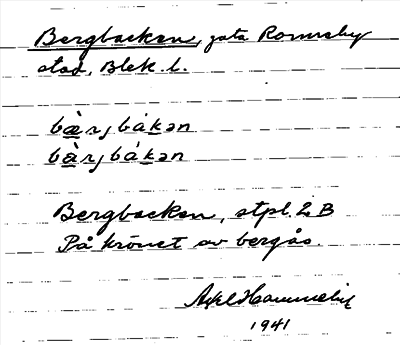 Bergbacken, gata Ronneby
stad, Blek. l.
bæ̀rjbákən
bàrjbákən
Bergbacken, stpl. 2 B
På krönet av bergås.
Axel
1941